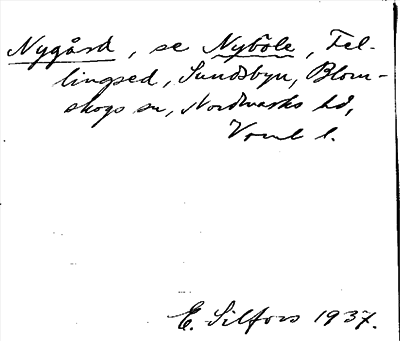 Nygård, se Nyböle, Fel-
lingsed, Sundsbyn, Blom-
skogs sn, Nordmarks hd,
Vrml l.
E. Silfors 1937.